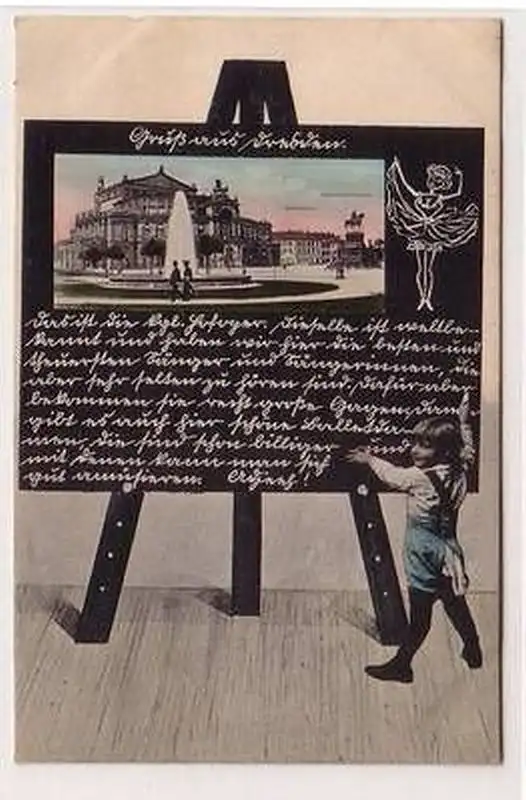 Gruß aus Dresden.
Das ist die Kgl. Hofoper. Dieselbe ist weltbe-
kannt und haben wir hier die besten und
theuersten Sänger und Sängerinnen, die
aber sehr selten zu hören sind, dafür aber
bekommen sie recht große Gagen, dann
gibt es auch hier schöne Balletda-
men, die sind schon billiger und
mit denen kann man sich
gut amüsieren. Adjeeh!